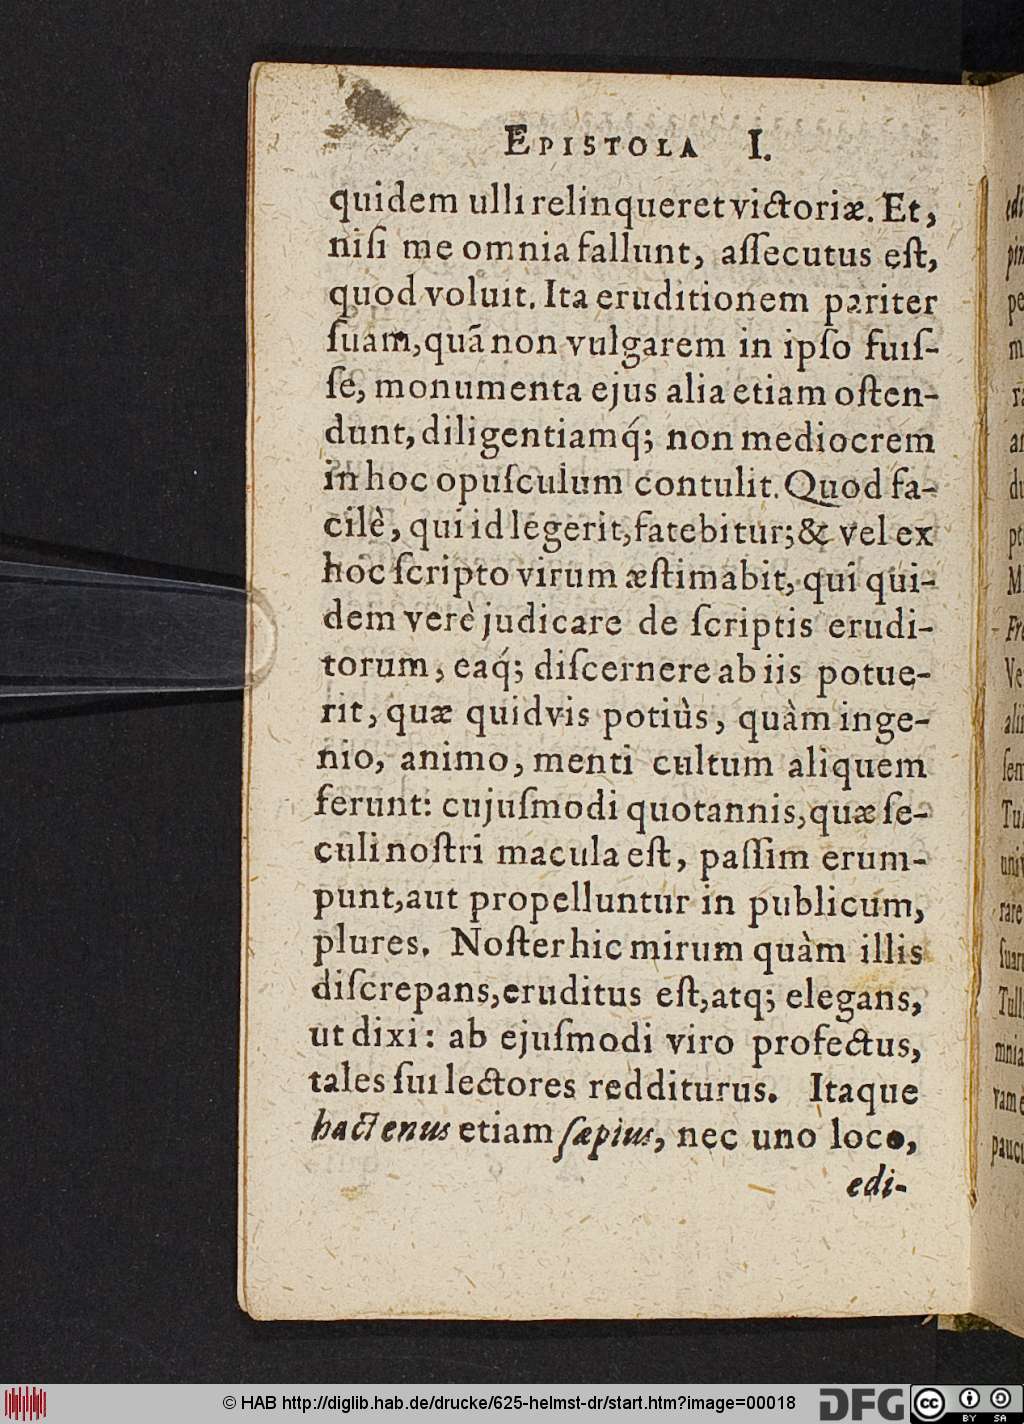 EPISTOLA I.
quidem ulli relinqueret victoriæ. Et,
niſi me omnia fallunt, aſſecutus eſt,
quod voluit. Ita eruditionem pariter
ſuam, quã non vulgarem in ipſo fuiſ-
ſe, monumenta ejus alia etiam oſten-
dunt, diligentiamq́; non mediocrem
in hoc opuſculum contulit. Quod fa-
cilè, qui id legerit, fatebitur; & vel ex
hoc ſcripto virum æſtimabit, qui qui-
dem verè judicare de ſcriptis erudi-
torum, eaq́; diſcernere ab iis potue-
rit, quæ quidvis potiùs, quàm inge-
nio, animo, menti cultum aliquem
ferunt: cujuſmodi quotannis, quæ ſe-
culi noſtri macula eſt, paſſim erum-
punt, aut propelluntur in publicum,
plures. Noſter hic mirum quàm illis
diſcrepans, eruditus eſt, atq; elegans,
ut dixi: ab ejuſmodi viro profectus,
tales ſui lectores redditurus. Itaque
hactenus etiam ſæpius, nec uno loco,
edi-
© HAB http://diglib.hab.de/drucke/625-helmst-dr/start.htm?image=00018
DFG
cc
BY SA